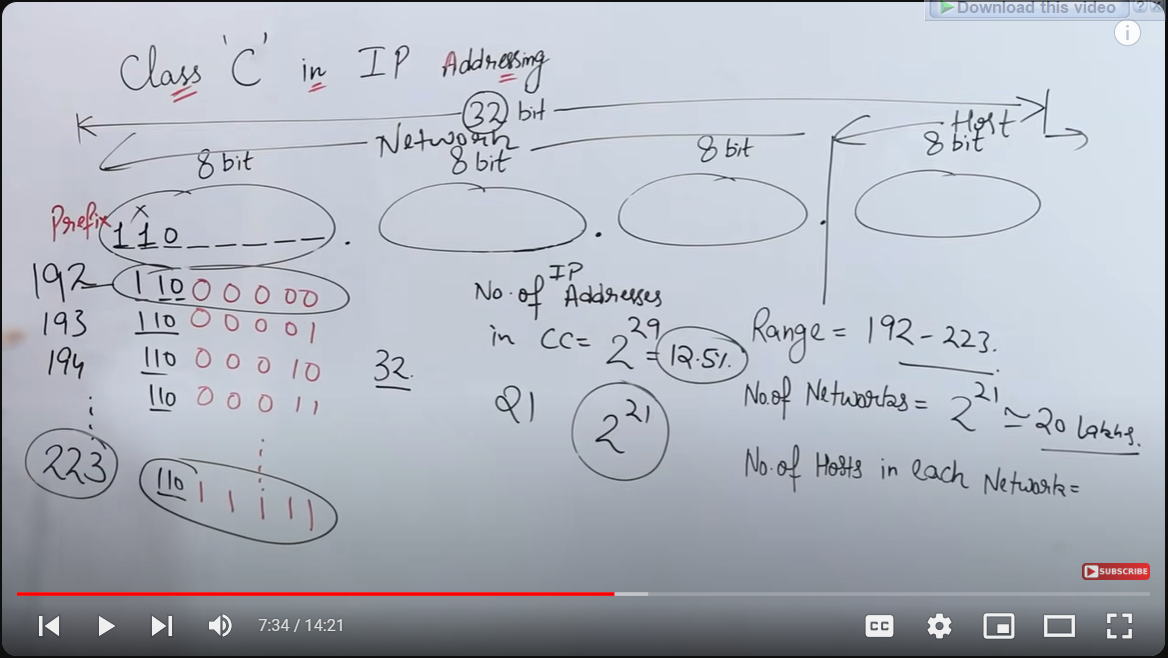 Download this video
Class 'C' in IP Addressing
32 bit
Network
Host
8 bit 8 bit 8 bit 8 bit
Prefix 110 . . .
192 110 0 0 0 0 0
193 110 0 0 0 0 1
194 110 0 0 0 1 0
110 0 0 0 1 1
223 110 1 1 1 1 1
32
No. of IP Addresses
in CC = 2^29 = 12.5%
21 2^21
Range = 192 - 223.
No. of Networks = 2^21 ≃ 20 lakhs.
No. of Hosts in each Network =
SUBSCRIBE
7:34 / 14:21
CC